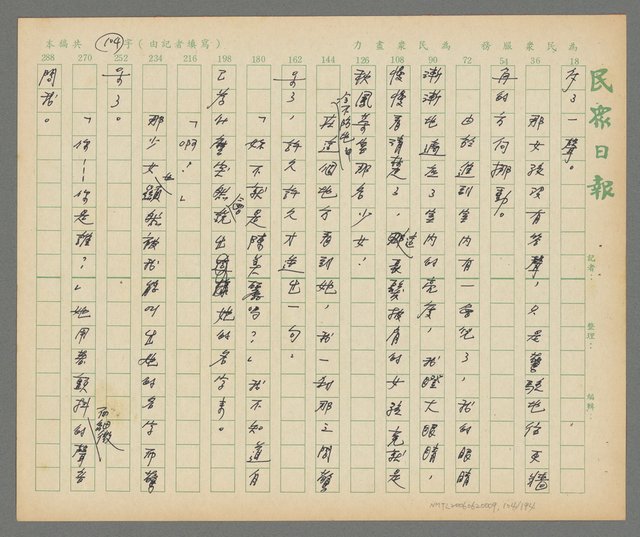 為民眾服務　為民眾盡力
(104)字(由記者填寫)　本稿共
18 36 54 72 90 108 126 144 162 180 198 216 234 252 270 288
民眾日報
記者：
整理：
編輯：
了一聲。
那女孩沒有答聲，只是驚駭地往更牆
角的方向挪動。
由於進到室內有一會兒了，我的眼睛
漸漸地適應了室內的亮度，我瞪大眼睛，
慢慢看清楚了，這長髮披肩的女孩竟然是
秋鳳茶室那名少女！
在這個地方看到她，我一剎那之間驚
呆了，許久許久才迸出一句：
「妳不就是陳美麗嗎？」我不知道自
己為什麼突然會說出她的名字來。
「啊？」
那少女也顯然被我能叫出她的名字而驚
呆了。
「你——你是誰？」她用著顫抖而細微的聲音
問我。
NMTL20060620009, 104/194